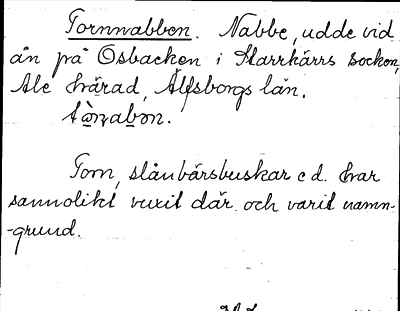 Tornnabben. Nabbe, udde vid
ån på Osbacken i Starrkärrs socken,
Ale härad, Älfsborgs län.
Torn, slånbärsbuskar e d. har
sannolikt vuxit där och varit namn-
-grund.